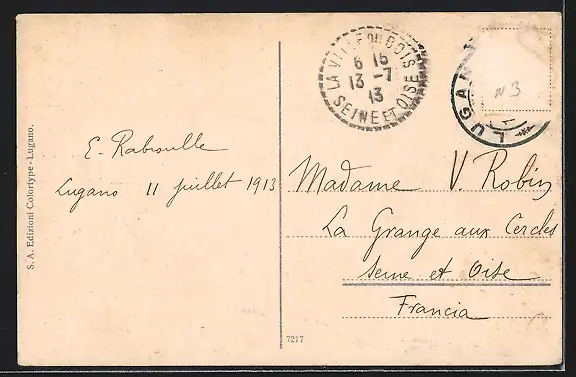 S. A. Edizioni Colortype - Lugano.
E. Rabroulle
Lugano 11 juillet 1913
LA VILLE DU BOIS
6 15
13 -7
13
SEINE ET OISE
LUGAN
N 3
Madame V. Robin
La Grange aux Cercles
Seine et Oise
Francia
7217